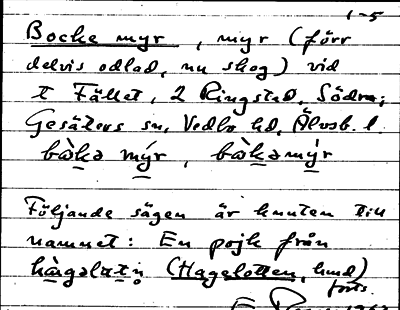 1-5
Bocke myr, myr (förr
delvis odlad, nu skog) vid
t Fället, 2 Ringstad, Södra;
Gesäters sn, Vedbo hd, Älvsb. l.
bòkə mýr, bòkəmýr
Följande sägen är knuten till
namnet: En pojk från
(Hagelotten, hmd)
forts.